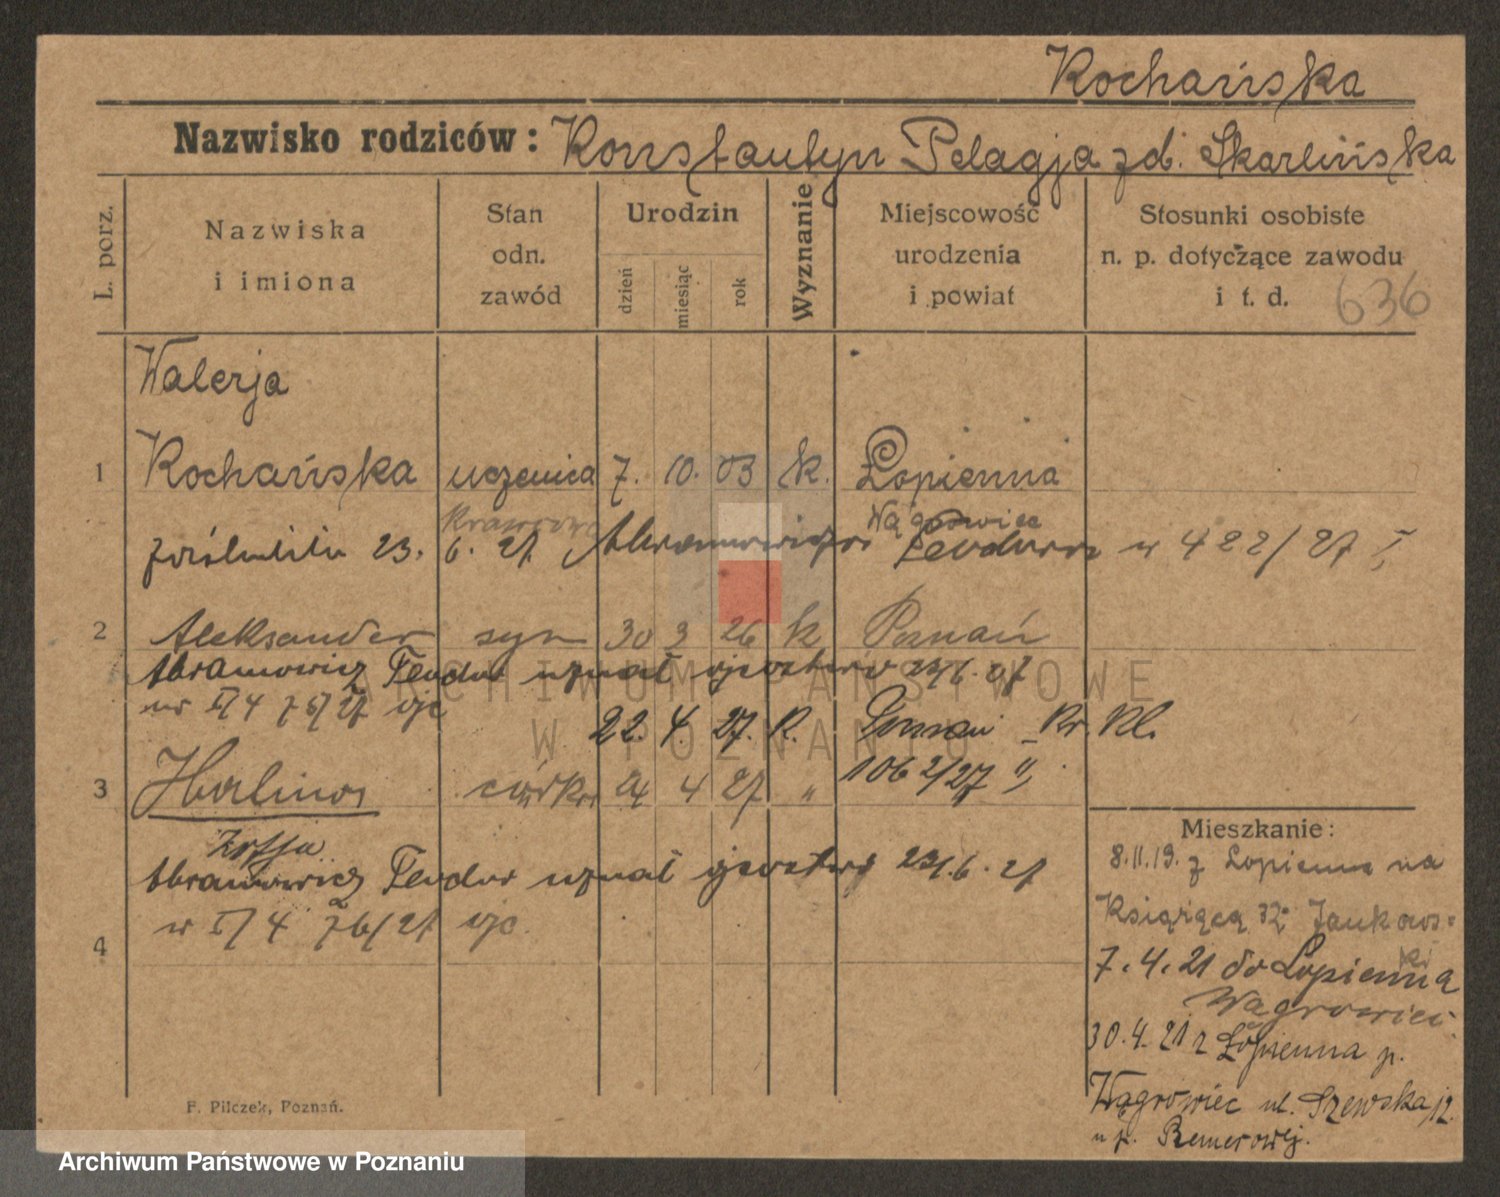 Kochańska
Nazwisko rodziców: Konstantyn Pelagja zd. Skarlińska
L. porz.
Nazwiska i imiona
Stan odn. zawód
Urodzin
dzień
miesiąc
rok
Wyznanie
Miejscowość urodzenia i powiat
Stosunki osobiste n. p. dotyczące zawodu i t. d.
636
Walerja
1 Kochańska uczenica 7. 10. 03 k. Łopienna
Wągrowiec
zaślubiła 23. 6. 27. Abramowicza Teodora w 422/27 I,
2 Aleksander syn 30 3 26 k Poznań
Abramowicz Teodor uznał ojcostwo 6. 27
22. 4. 27. K. Poznań Kr. Kl.
3 Halina córka 4 27 " 1062/27 II,
Zofja
Abramowicz Teodor uznał ojcostwo 6. 27
4
Mieszkanie:
8.II.19. z Łopienna na
Książęcą 32 Jankows-
ki
7. 4. 21 do Łopienna
Wągrowiec
30. 4. 21 z Łopienna p.
Wągrowiec ul. Szewska 12.
u p. Remerowej.
F. Pilczek, Poznań.
ARCHIWUM PAŃSTWOWE
W POZNANIU
Archiwum Państwowe w Poznaniu